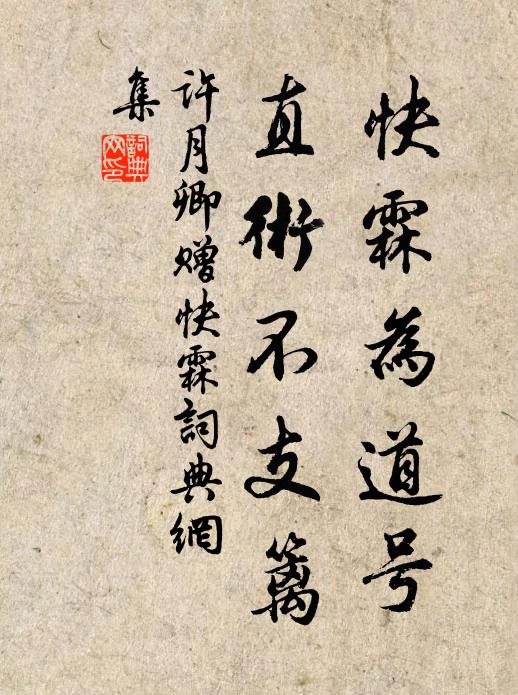 快霖為道号
直術不支籬
許月卿贈快霖詞典網
集
詞典
网